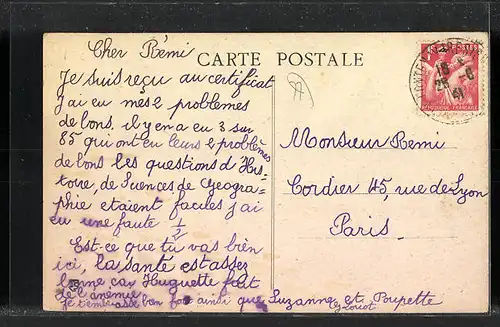 Cher Rémi
CARTE POSTALE
Je suis reçu au certificat
j'ai eu mes 2 problèmes
de bons, il y en a eu 3 sur
85 qui ont eu leurs 2 problèmes
de bons les questions d'His-
toire, de Sciences de Geogra-
phie etaient faciles j'ai
eu une faute 1/2
Est-ce que tu vas bien
ici, la santé est assez
bonne car Huguette fait
de l'anémie
je t'embrasse bien fort ainsi que Suzanne et Poupette
Monsieur Remi
Cordier 45, rue de Lyon
Paris.
POSTES
REPUBLIQUE FRANÇAISE
41